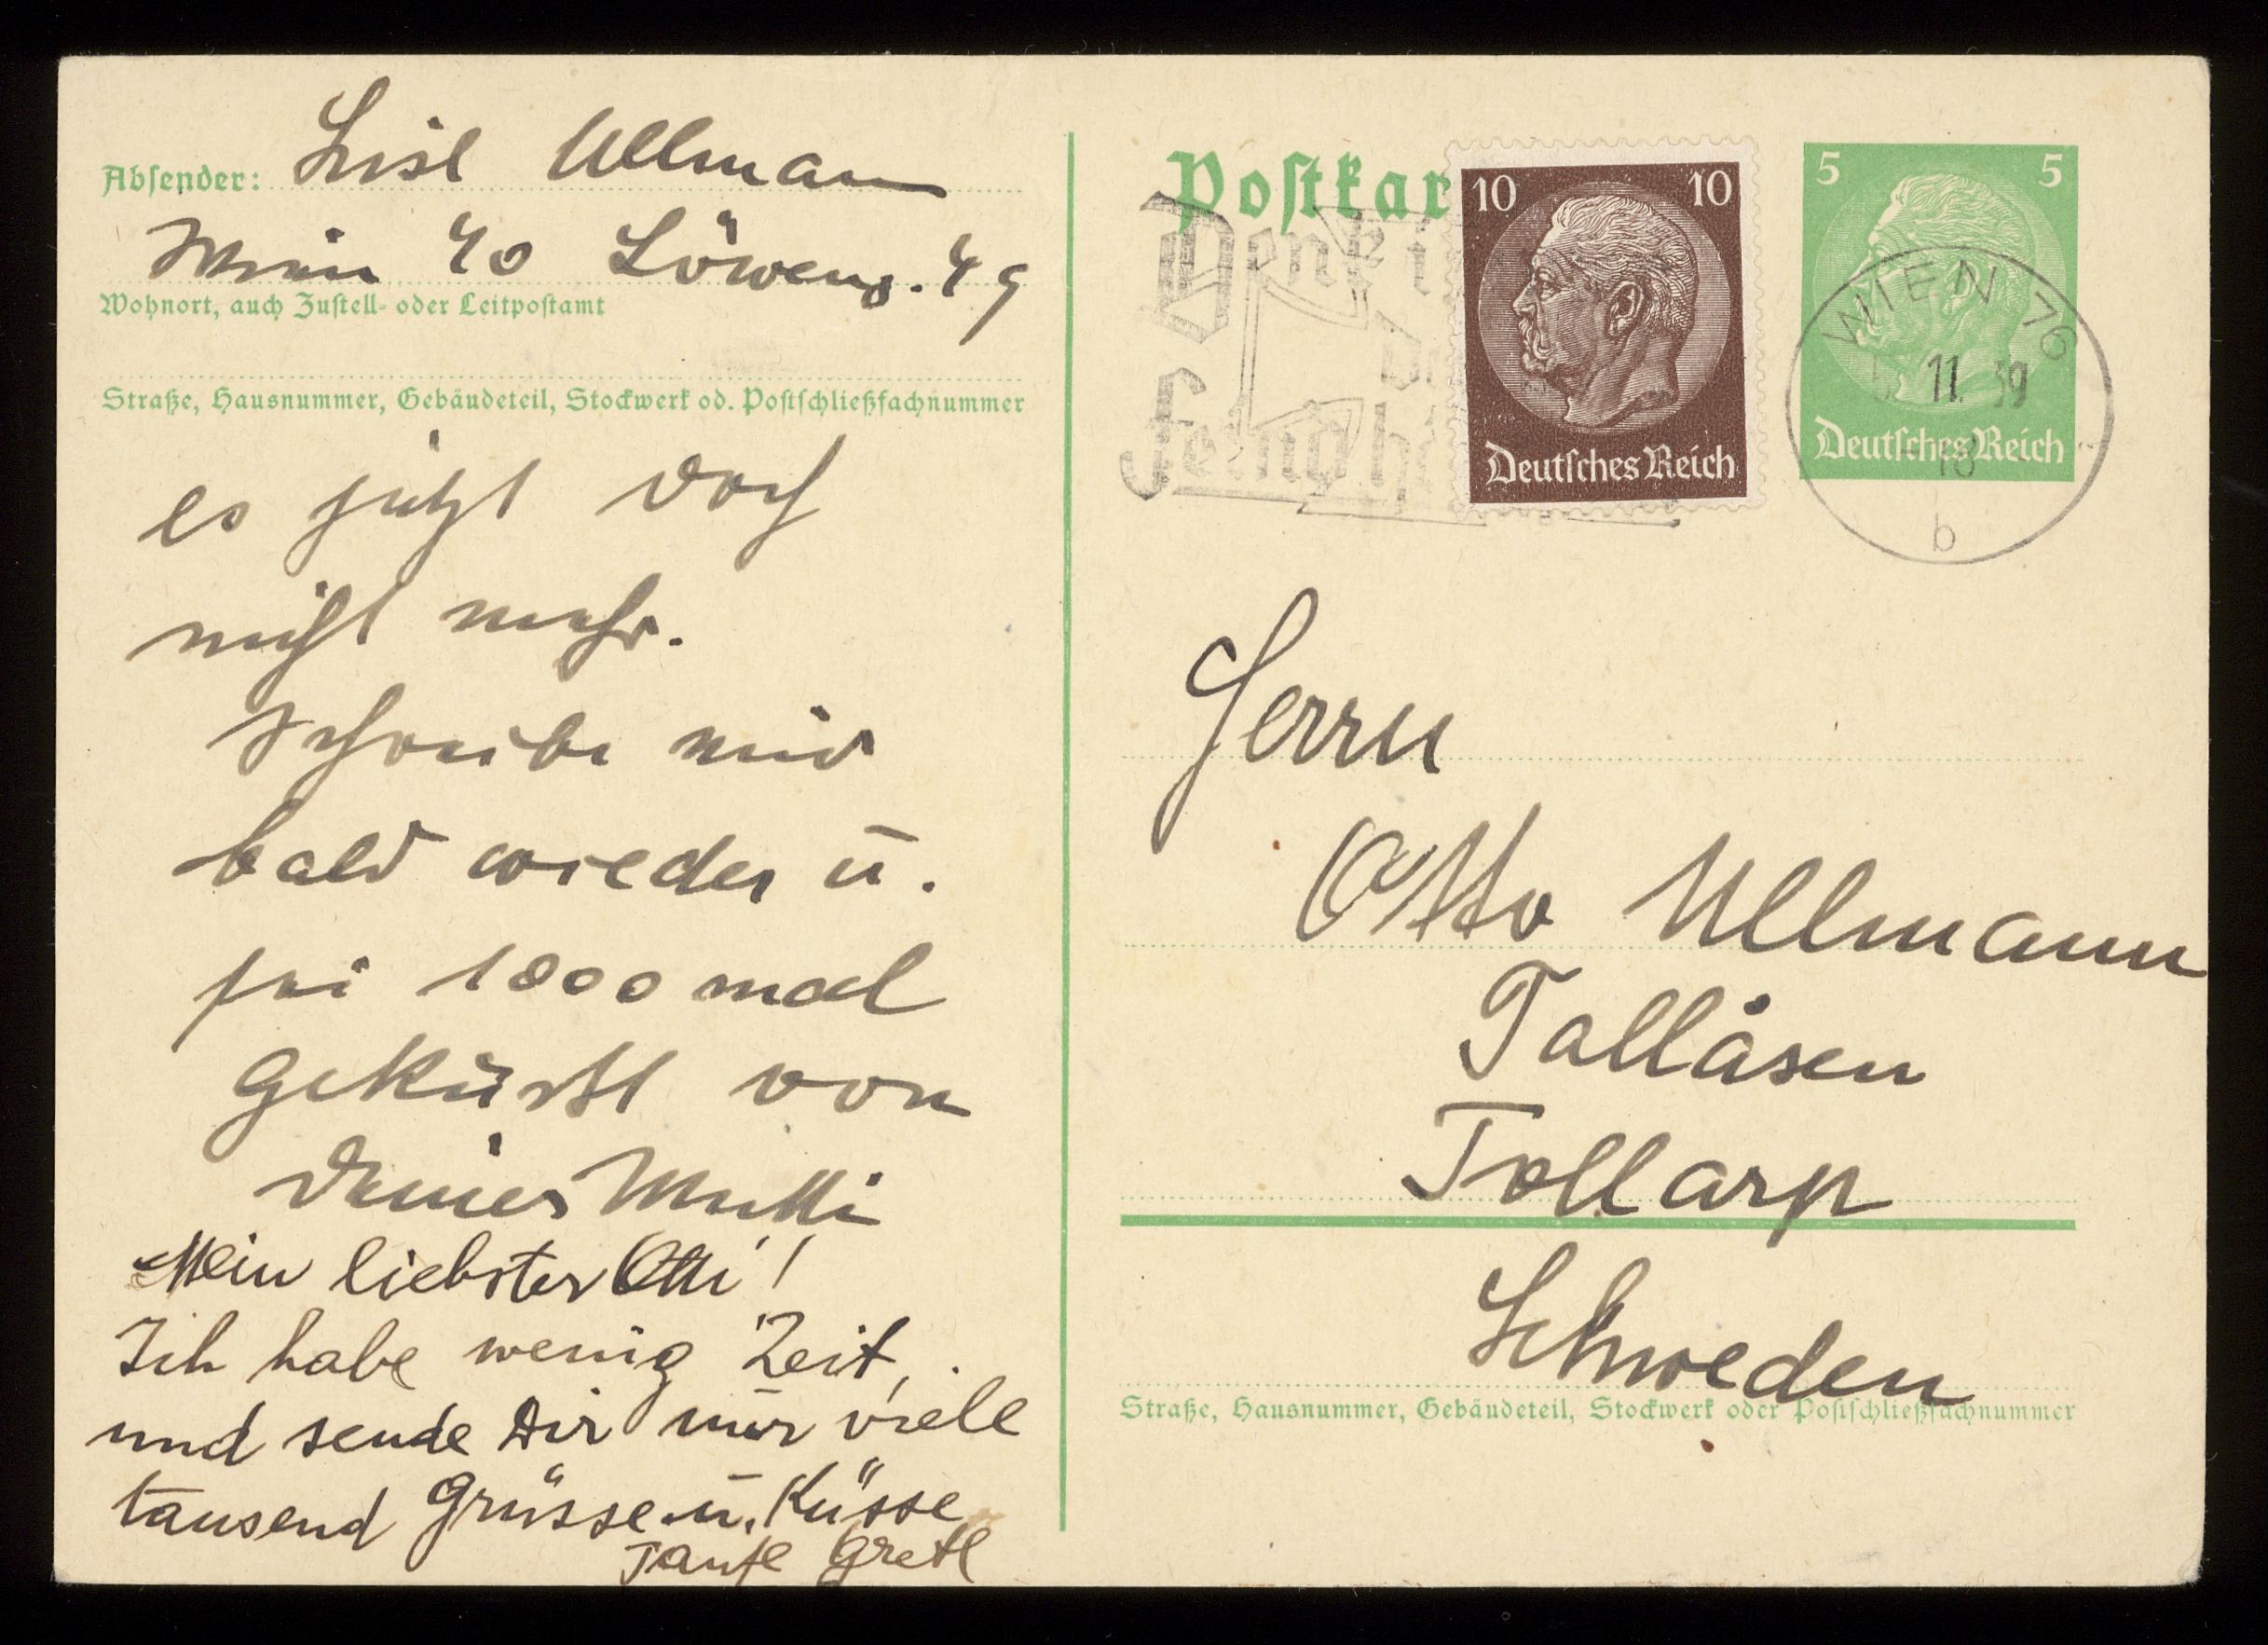 Absender: Lisl Ullmann
Wien 40 Löweng. 49
Wohnort, auch Zustell- oder Leitpostamt
Straße, Hausnummer, Gebäudeteil, Stockwerk od. Postschließfachnummer
es jetzt doch
nicht mehr.
Schreibe mir
bald wieder u.
sei 1000 mal
geküsst von
Deiner Mutti
Mein liebster Otti!
Ich habe wenig Zeit,
und sende Dir nur viele
tausend Grüsse u. Küsse
Tante Gretl
Postkar
10 10
Deutsches Reich
5 5
Deutsches Reich
WIEN 76
11. 39
b
Denk i
Feind h
Herrn
Otto Ullmann
Tallåsen
Tollarp
Schweden
Straße, Hausnummer, Gebäudeteil, Stockwerk oder Postschließfachnummer